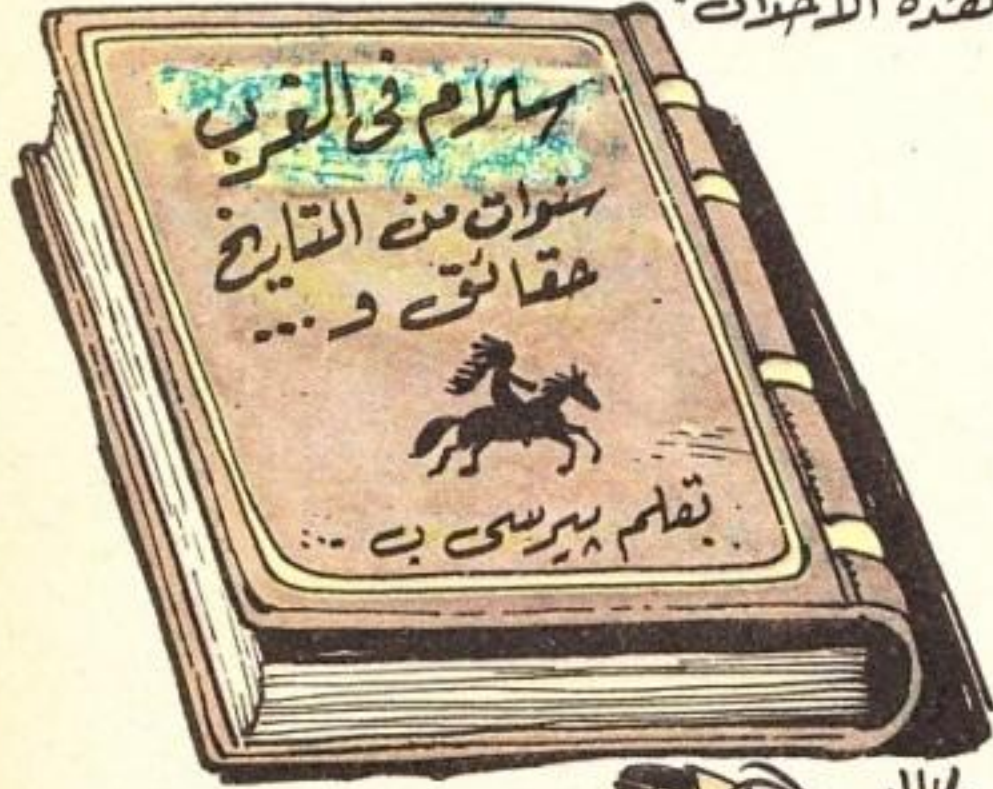 الأخلاق
سلام فى الغرب
سنوات من التاريخ
حقائق و...
بقلم پيرسى ب...